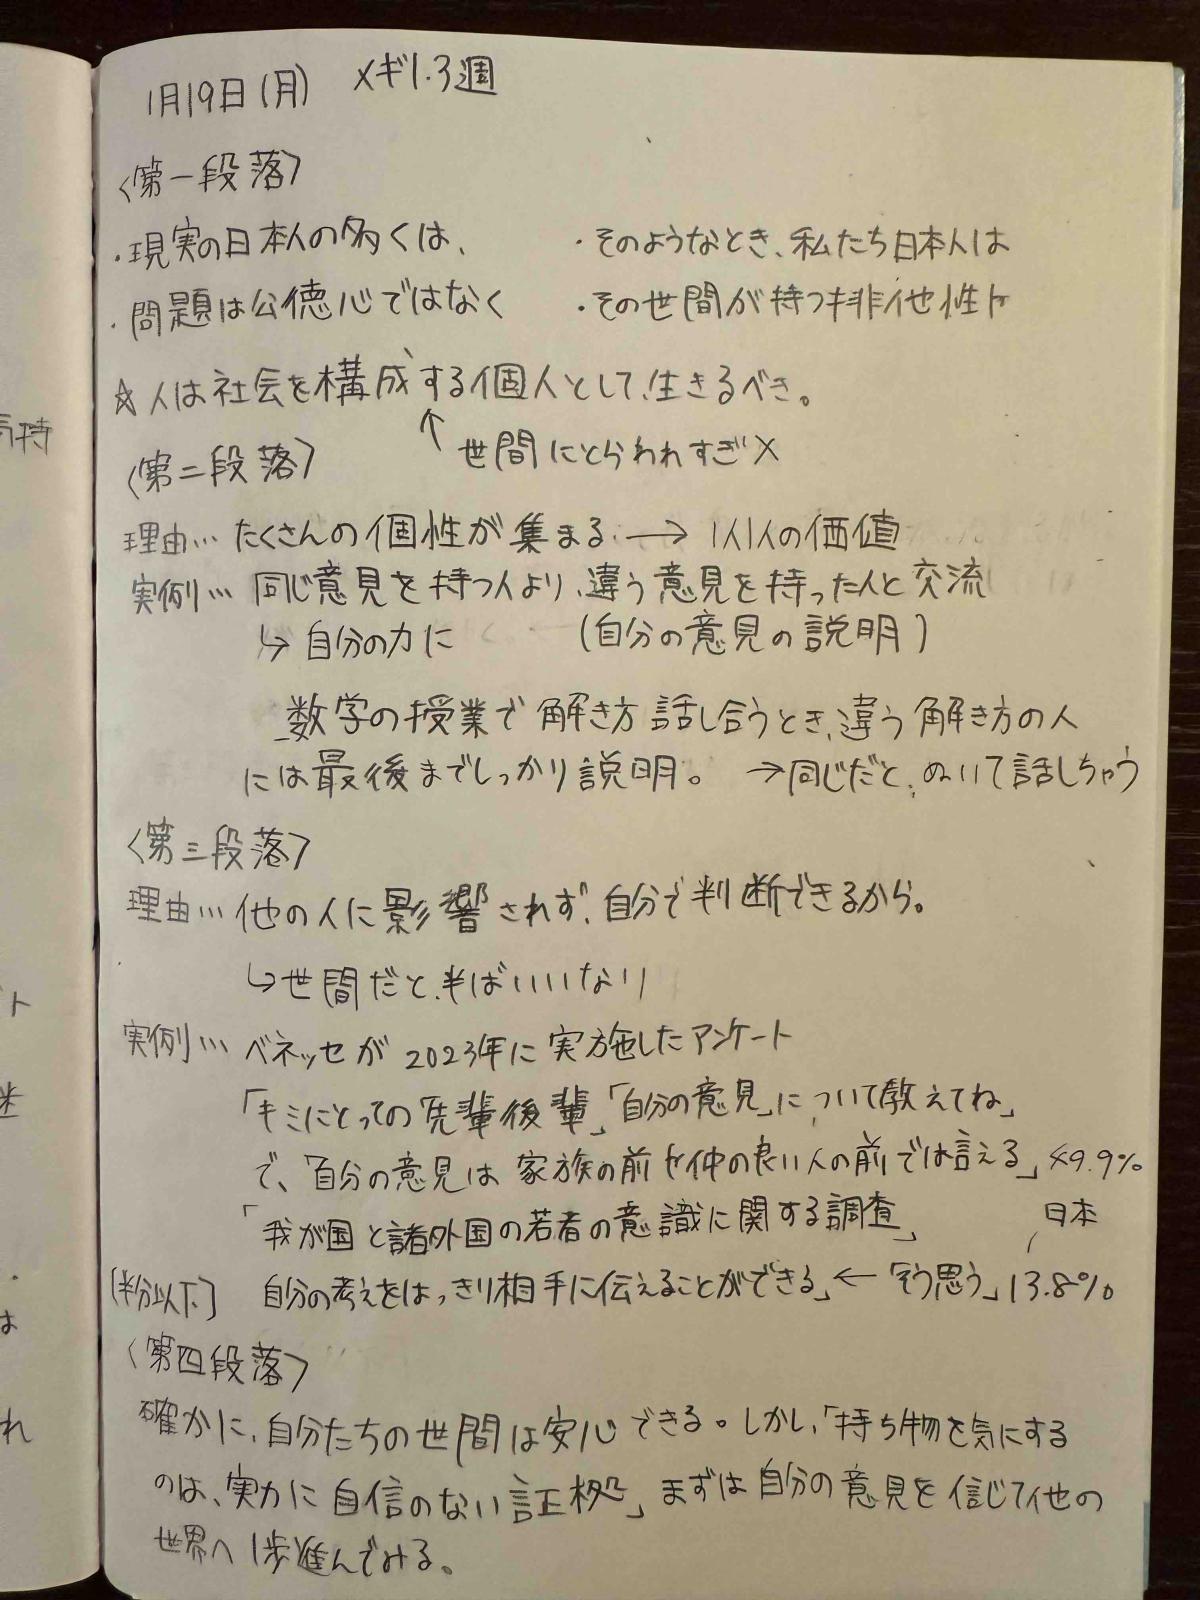 1月19日(月) メギ1.3週
〈第一段落〉
・現実の日本人の多くは、 ・そのようなとき、私たち日本人は
・問題は公徳心ではなく ・その世間が持つ排他性や
☆人は社会を構成する個人として、生きるべき。
↑ 世間にとらわれすぎ×
〈第二段落〉
理由… たくさんの個性が集まる → 1人1人の価値
実例… 同じ意見を持つ人より、違う意見を持った人と交流
↳自分の力に (自分の意見の説明)
数学の授業で解き方話し合うとき、違う解き方の人
には最後までしっかり説明。 →同じだと、ぬいて話しちゃう
〈第三段落〉
理由… 他の人に影響されず、自分で判断できるから。
↳世間だと、半ばいいなり
実例… ベネッセが2023年に実施したアンケート
「キミにとっての先輩後輩」「自分の意見」について教えてね」
で、「自分の意見は家族の前や仲の良い人の前では言える」49.9%
「我が国と諸外国の若者の意識に関する調査」 日本
(半分以下) 自分の考えをはっきり相手に伝えることができる」←「そう思う」13.8%
〈第四段落〉
確かに、自分たちの世間は安心できる。しかし、「持ち物を気にする
のは、実力に自信のない証拠」まずは自分の意見を信じて他の
世界へ1歩進んでみる。
気持
ト
は
れ